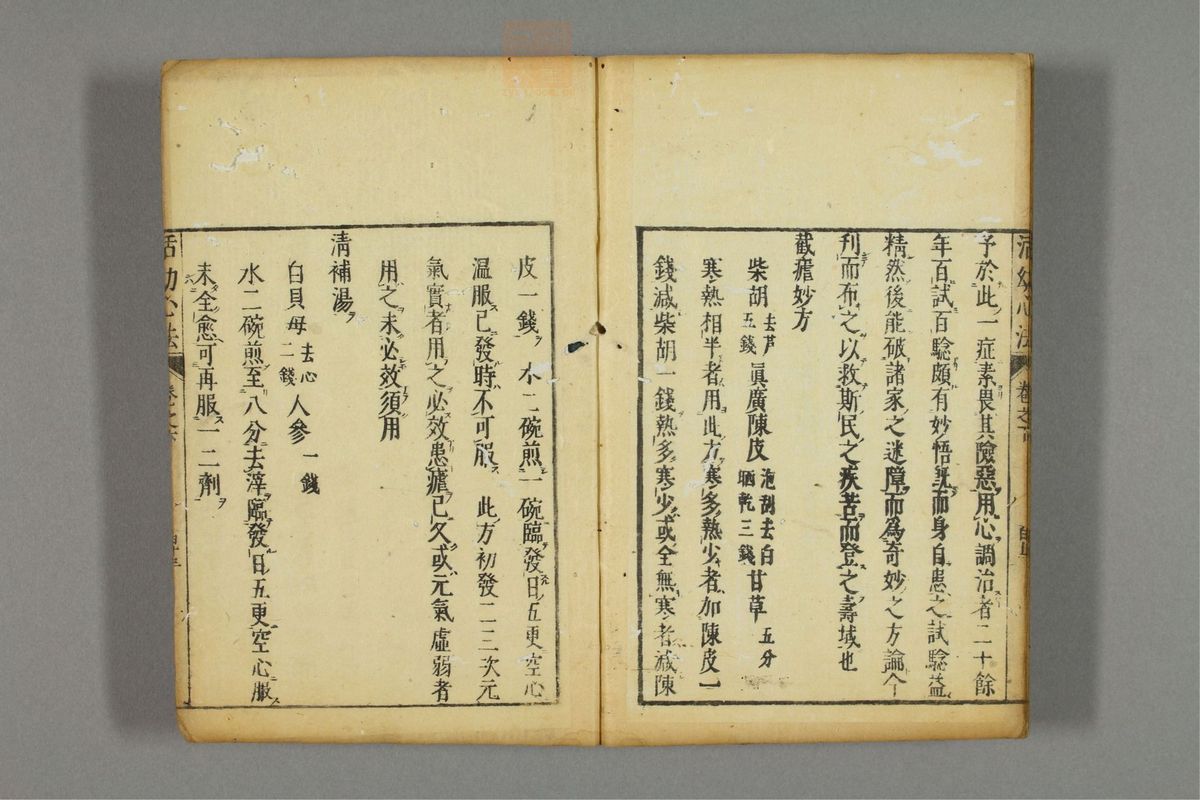 活幼心法
卷之
予於此一症素畏其險惡用心調治者二十餘
年百試百驗頗有妙悟旣而身自患之試驗益
精然後能破諸家之迷障而為奇妙之方論今
刊而布之以救斯民之疾苦而登之壽域也
截瘧妙方
柴胡去芦五錢 眞廣陳皮泡刮去白晒乾三錢 甘草五分
寒熱相半者用此方寒多熱少者加陳皮一
錢減柴胡一錢熱多寒少或全無寒者減陳
皮一錢 水二碗煎一碗臨發日五更空心
温服已發時不可服 此方初發二三次元
氣實者用之必效患瘧已久或元氣虛弱者
用之未必效須用
淸補湯
白貝母去心二錢 人參一錢
水二碗煎至八分去滓臨發日五更空心服
未全愈可再服一二劑
活幼心法
卷之